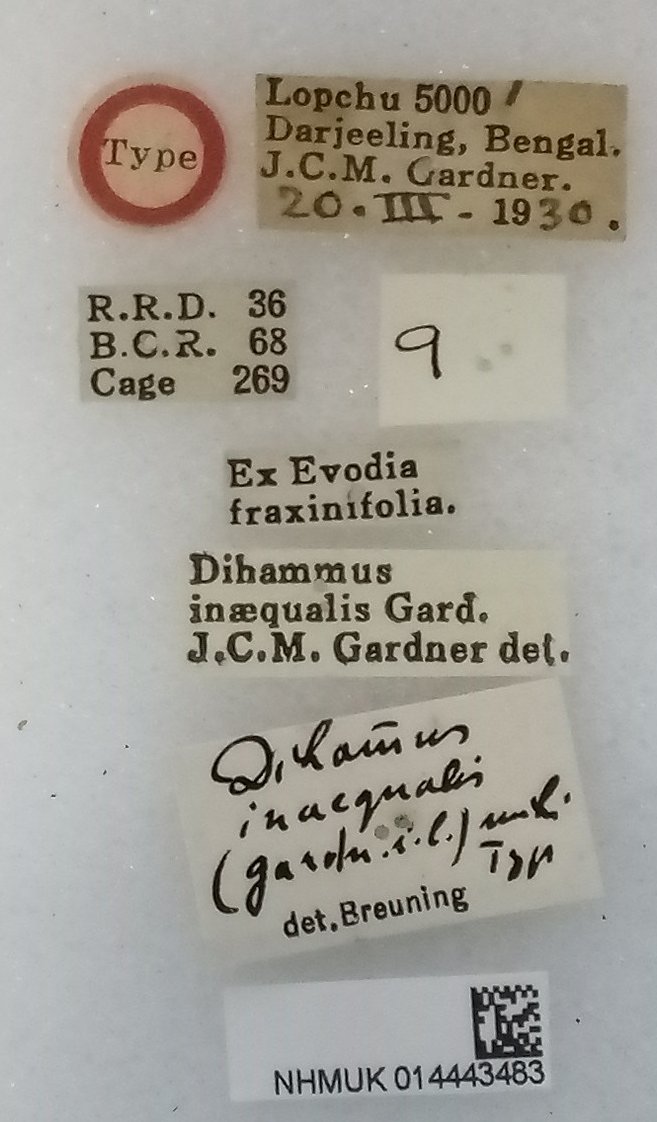 Type
Lopchu 5000 /
Darjeeling, Bengal.
J.C.M. Gardner.
20. III - 1930.
R.R.D. 36
B.C.R. 68
Cage 269
9
Ex Evodia
fraxinifolia.
Dihammus
inæqualis Gard.
J.C.M. Gardner det.
Diham̄us
inaequalis
(gardn. i. l.) mh.
Typ
det. Breuning
NHMUK 014443483